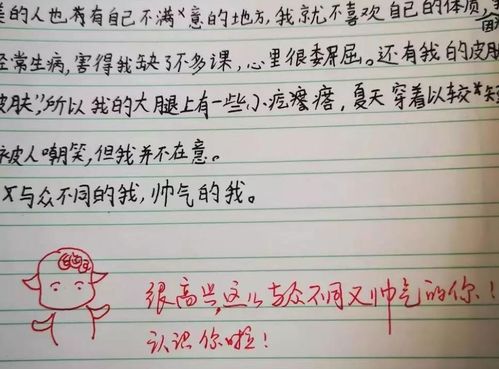 的人也有自己不满意的地方,我就不喜欢自己的体质,
经常生病,害得我缺了不多课,心里很委屈。还有我的皮肤
皮肤”,所以我的大腿上有一些小疙瘩瘩,夏天穿着以较短
被人嘲笑,但我并不在意。
又与众不同的我,帅气的我。
很高兴,这么与众不同又帅气的你!
认识你啦!